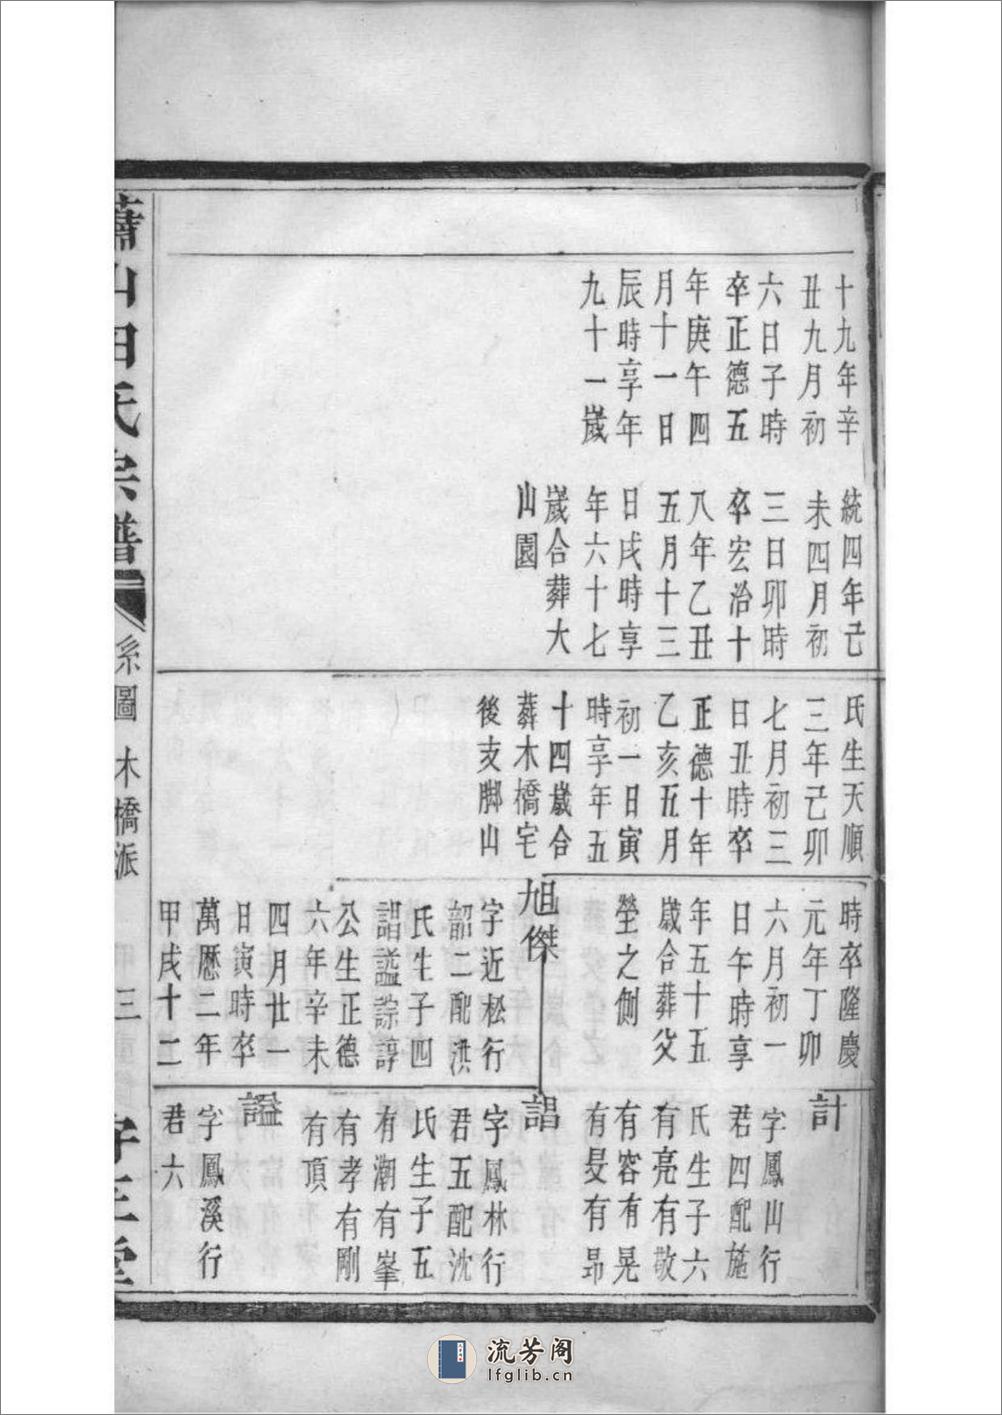 十九年辛
丑九月初
六日子時
卒正德五
年庚午四
月十一日
辰時享年
九十一歲
統四年己
未四月初
三日卯時
卒宏治十
八年乙丑
五月十三
日戌時享
年六十七
歲合葬大
山園
氏生天順
三年己卯
七月初三
日丑時卒
正德十年
乙亥五月
初一日寅
時享年五
十四歲合
葬木橋宅
後支脚山
時卒隆慶
元年丁卯
六月初一
日午時享
年五十五
歲合葬父
塋之側
旭傑
字近松行
韶二配洪
氏生子四
誯謚誴諄
公生正德
六年辛未
四月廿一
日寅時卒
萬歷二年
甲戌十二
計
字鳳山行
君四配施
氏生子六
有亮有敬
有容有晃
有旻有昂
誯
字鳳林行
君五配沈
氏生子五
有潮有峯
有孝有剛
有頂
謚
字鳳溪行
君六
蕭山田氏宗譜
系圖 木橋派
三
流芳阁
lfglib.cn